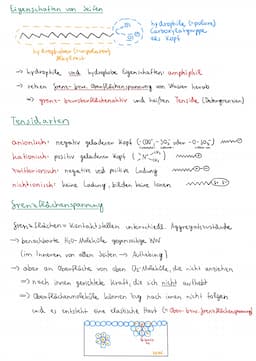 Eigenschaften von Seifen
hydrophile (=polare)
Carboxylatgruppe
als Kopf
hydrophober (=unpolarer)
Alkylrest
→ hydrophile und hydrophobe Eigenschaften: amphiphil
→ setzen Grenz- bzw. Oberflächenspannung von Wasser herab
⇒ grenz- bzw. oberflächenaktiv und heißen Tenside (Detergenzien)
Tensidarten
anionisch: negativ geladener Kopf (-COO⁻, -SO₃⁻ oder -O-SO₃⁻)
kationisch: positiv geladener Kopf
zwitterionisch: negative und positive Ladung
nichtionisch: keine Ladung, bilden keine Ionen
Grenzflächenspannung
Grenzflächen = Kontaktstellen unterschiedl. Aggregatzustände
→ benachbarte H₂O-Moleküle gegenseitige WW
(im Inneren von allen Seiten → Aufhebung)
→ aber an Oberfläche von oben O₂-Moleküle, die nicht anziehen
→ nach innen gerichtete Kraft, die sich nicht aufhebt
⇒ Oberflächenmoleküle können Zug nach innen nicht folgen
und es entsteht eine elastische Haut (= Ober- bzw. Grenzflächenspannung)